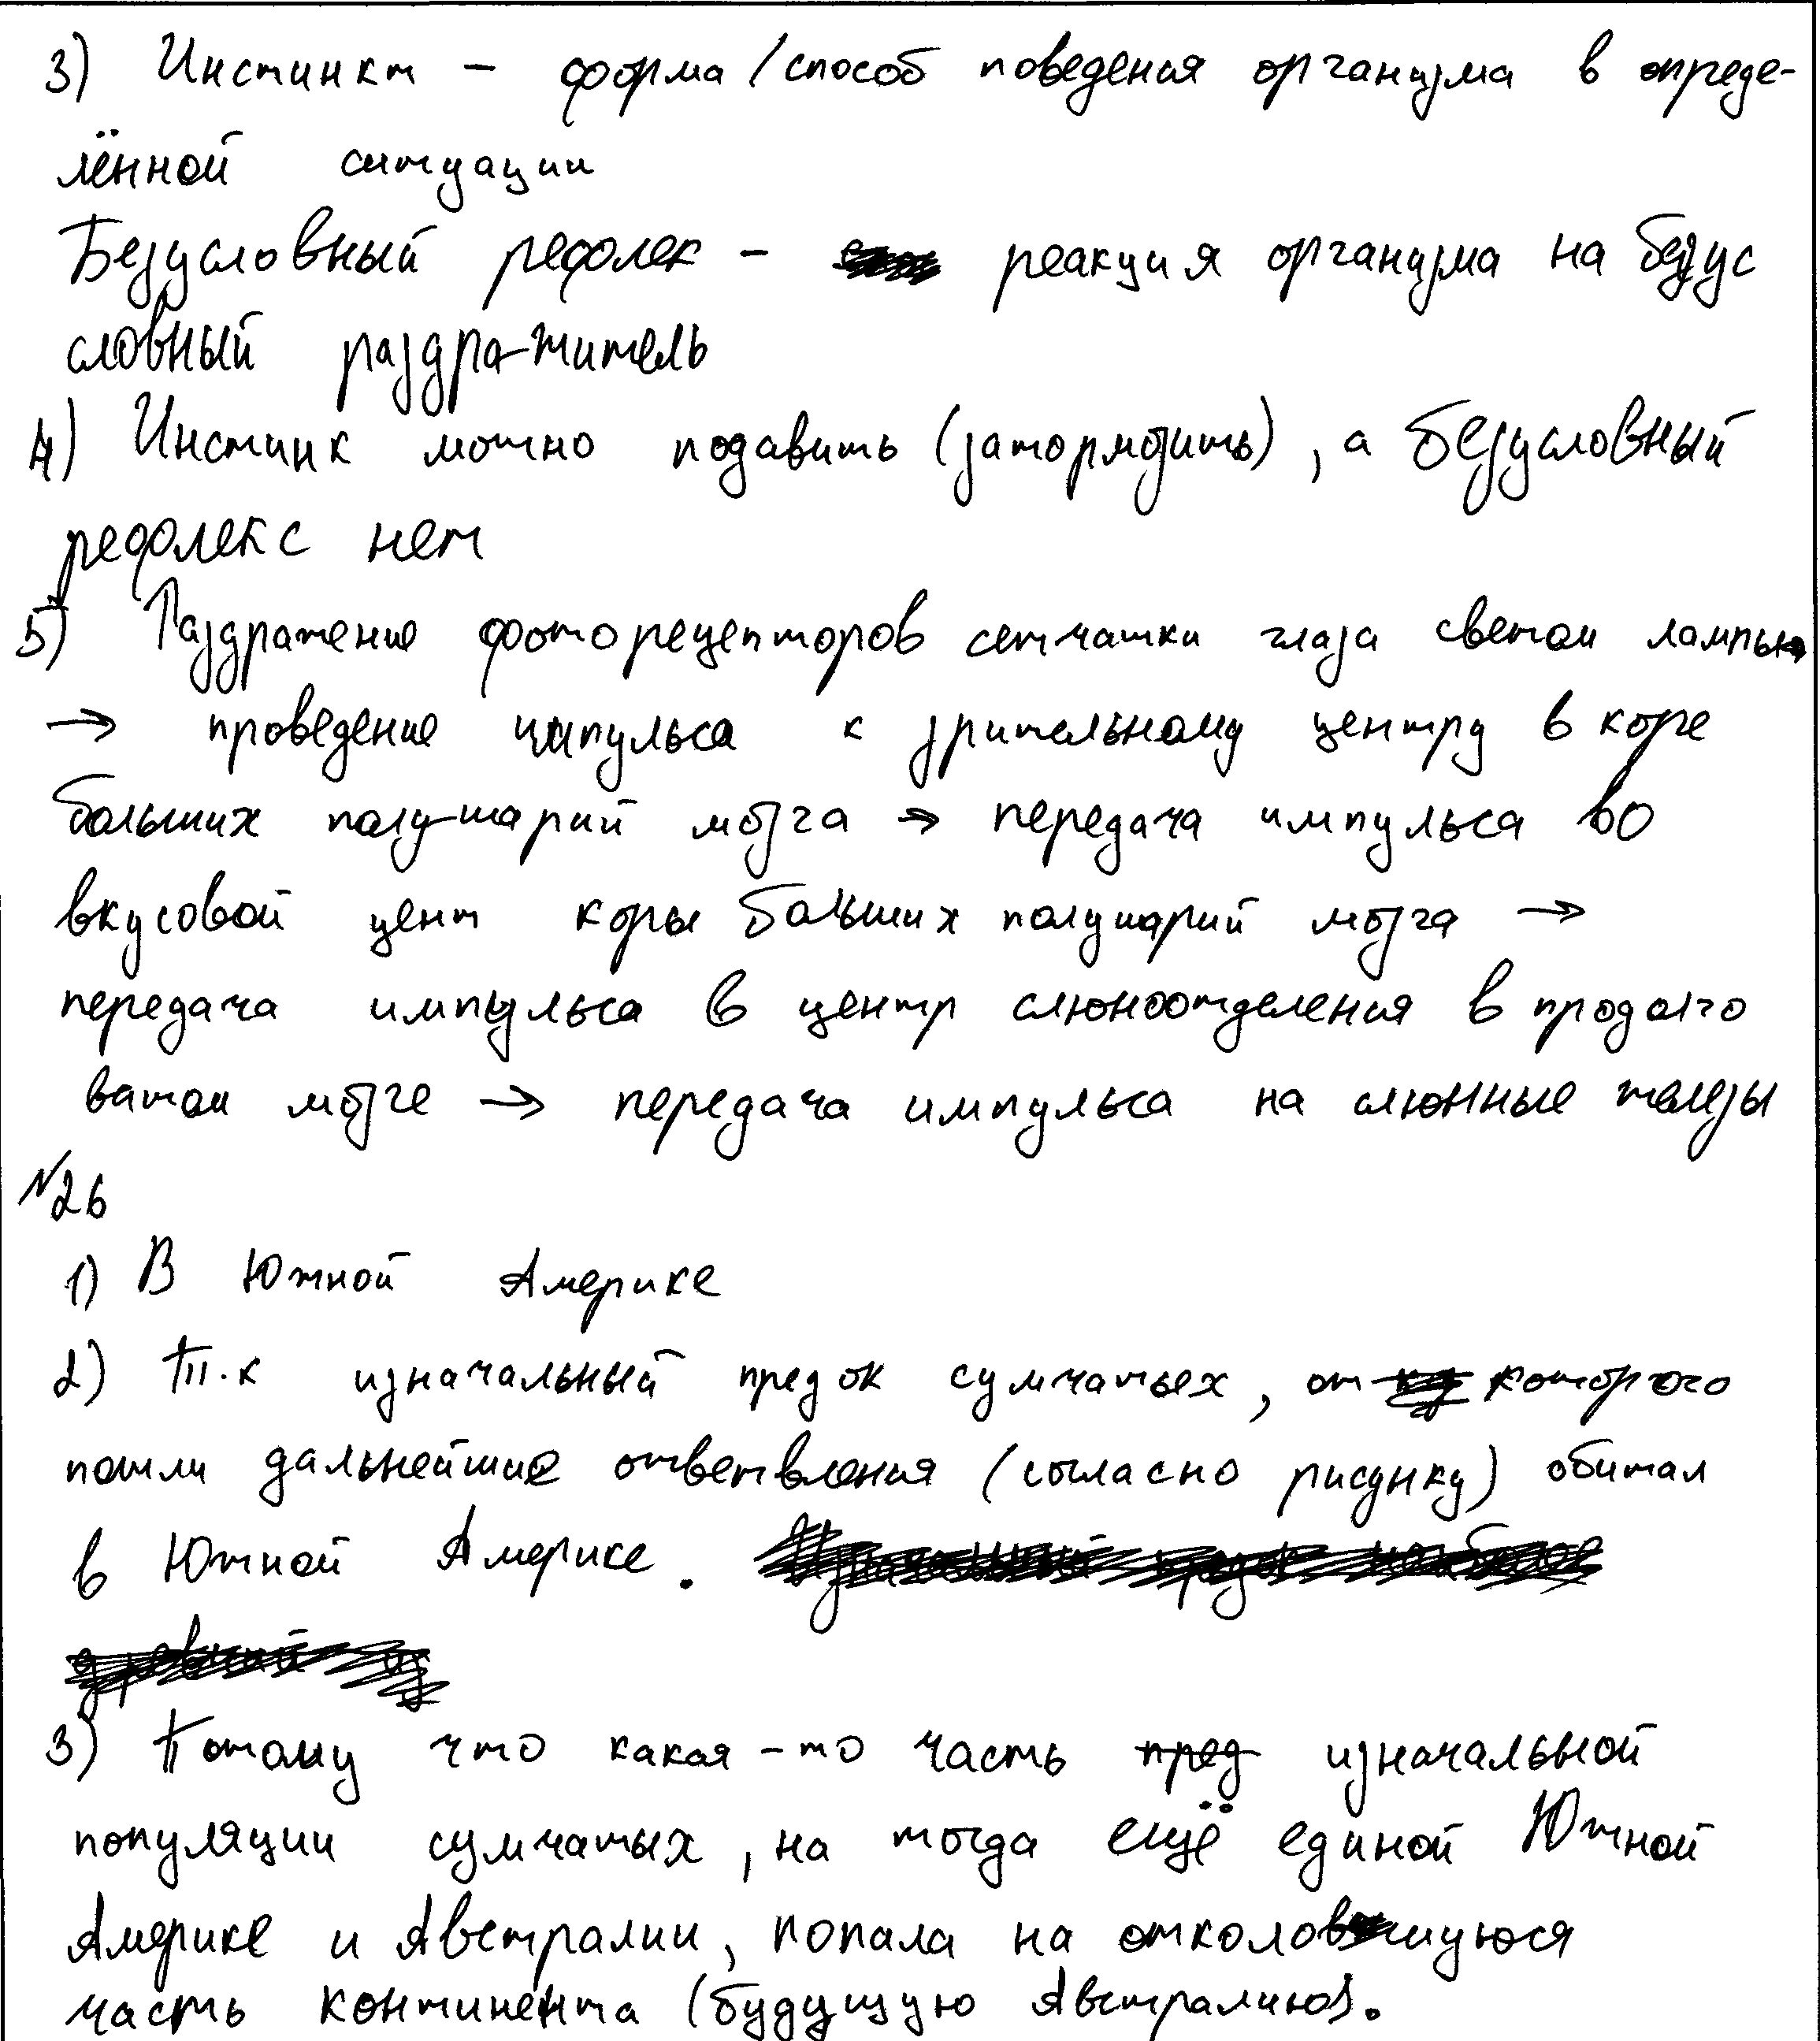 3) Инстинкт - форма/способ поведения организма в опреде-
лённой ситуации
Безусловный рефлек - реакция организма на безус
словный раздражитель
4) Инстинк можно подавить (затормозить), а безусловный
рефлекс нет
5) Раздражение фоторецепторов сетчатки глаза светом лампы
→ проведение импульса к зрительному центру в коре
больших полушарий мозга → передача импульса во
вкусовой цент коры больших полушарий мозга →
передача импульса в центр слюноотделения в продолго
ватом мозге → передача импульса на слюнные железы
№26
1) В Южной Америке
2) Т.к изначальный предок сумчатых, от которого
пошли дальнейшие ответвления (согласно рисунку) обитал
в Южной Америке.
3) Потому что какая-то часть пред изначальной
популяции сумчатых, на тогда ещё единой Южной
Америке и Австралии, попала на отколовшуюся
часть континента (будущую Австралию).